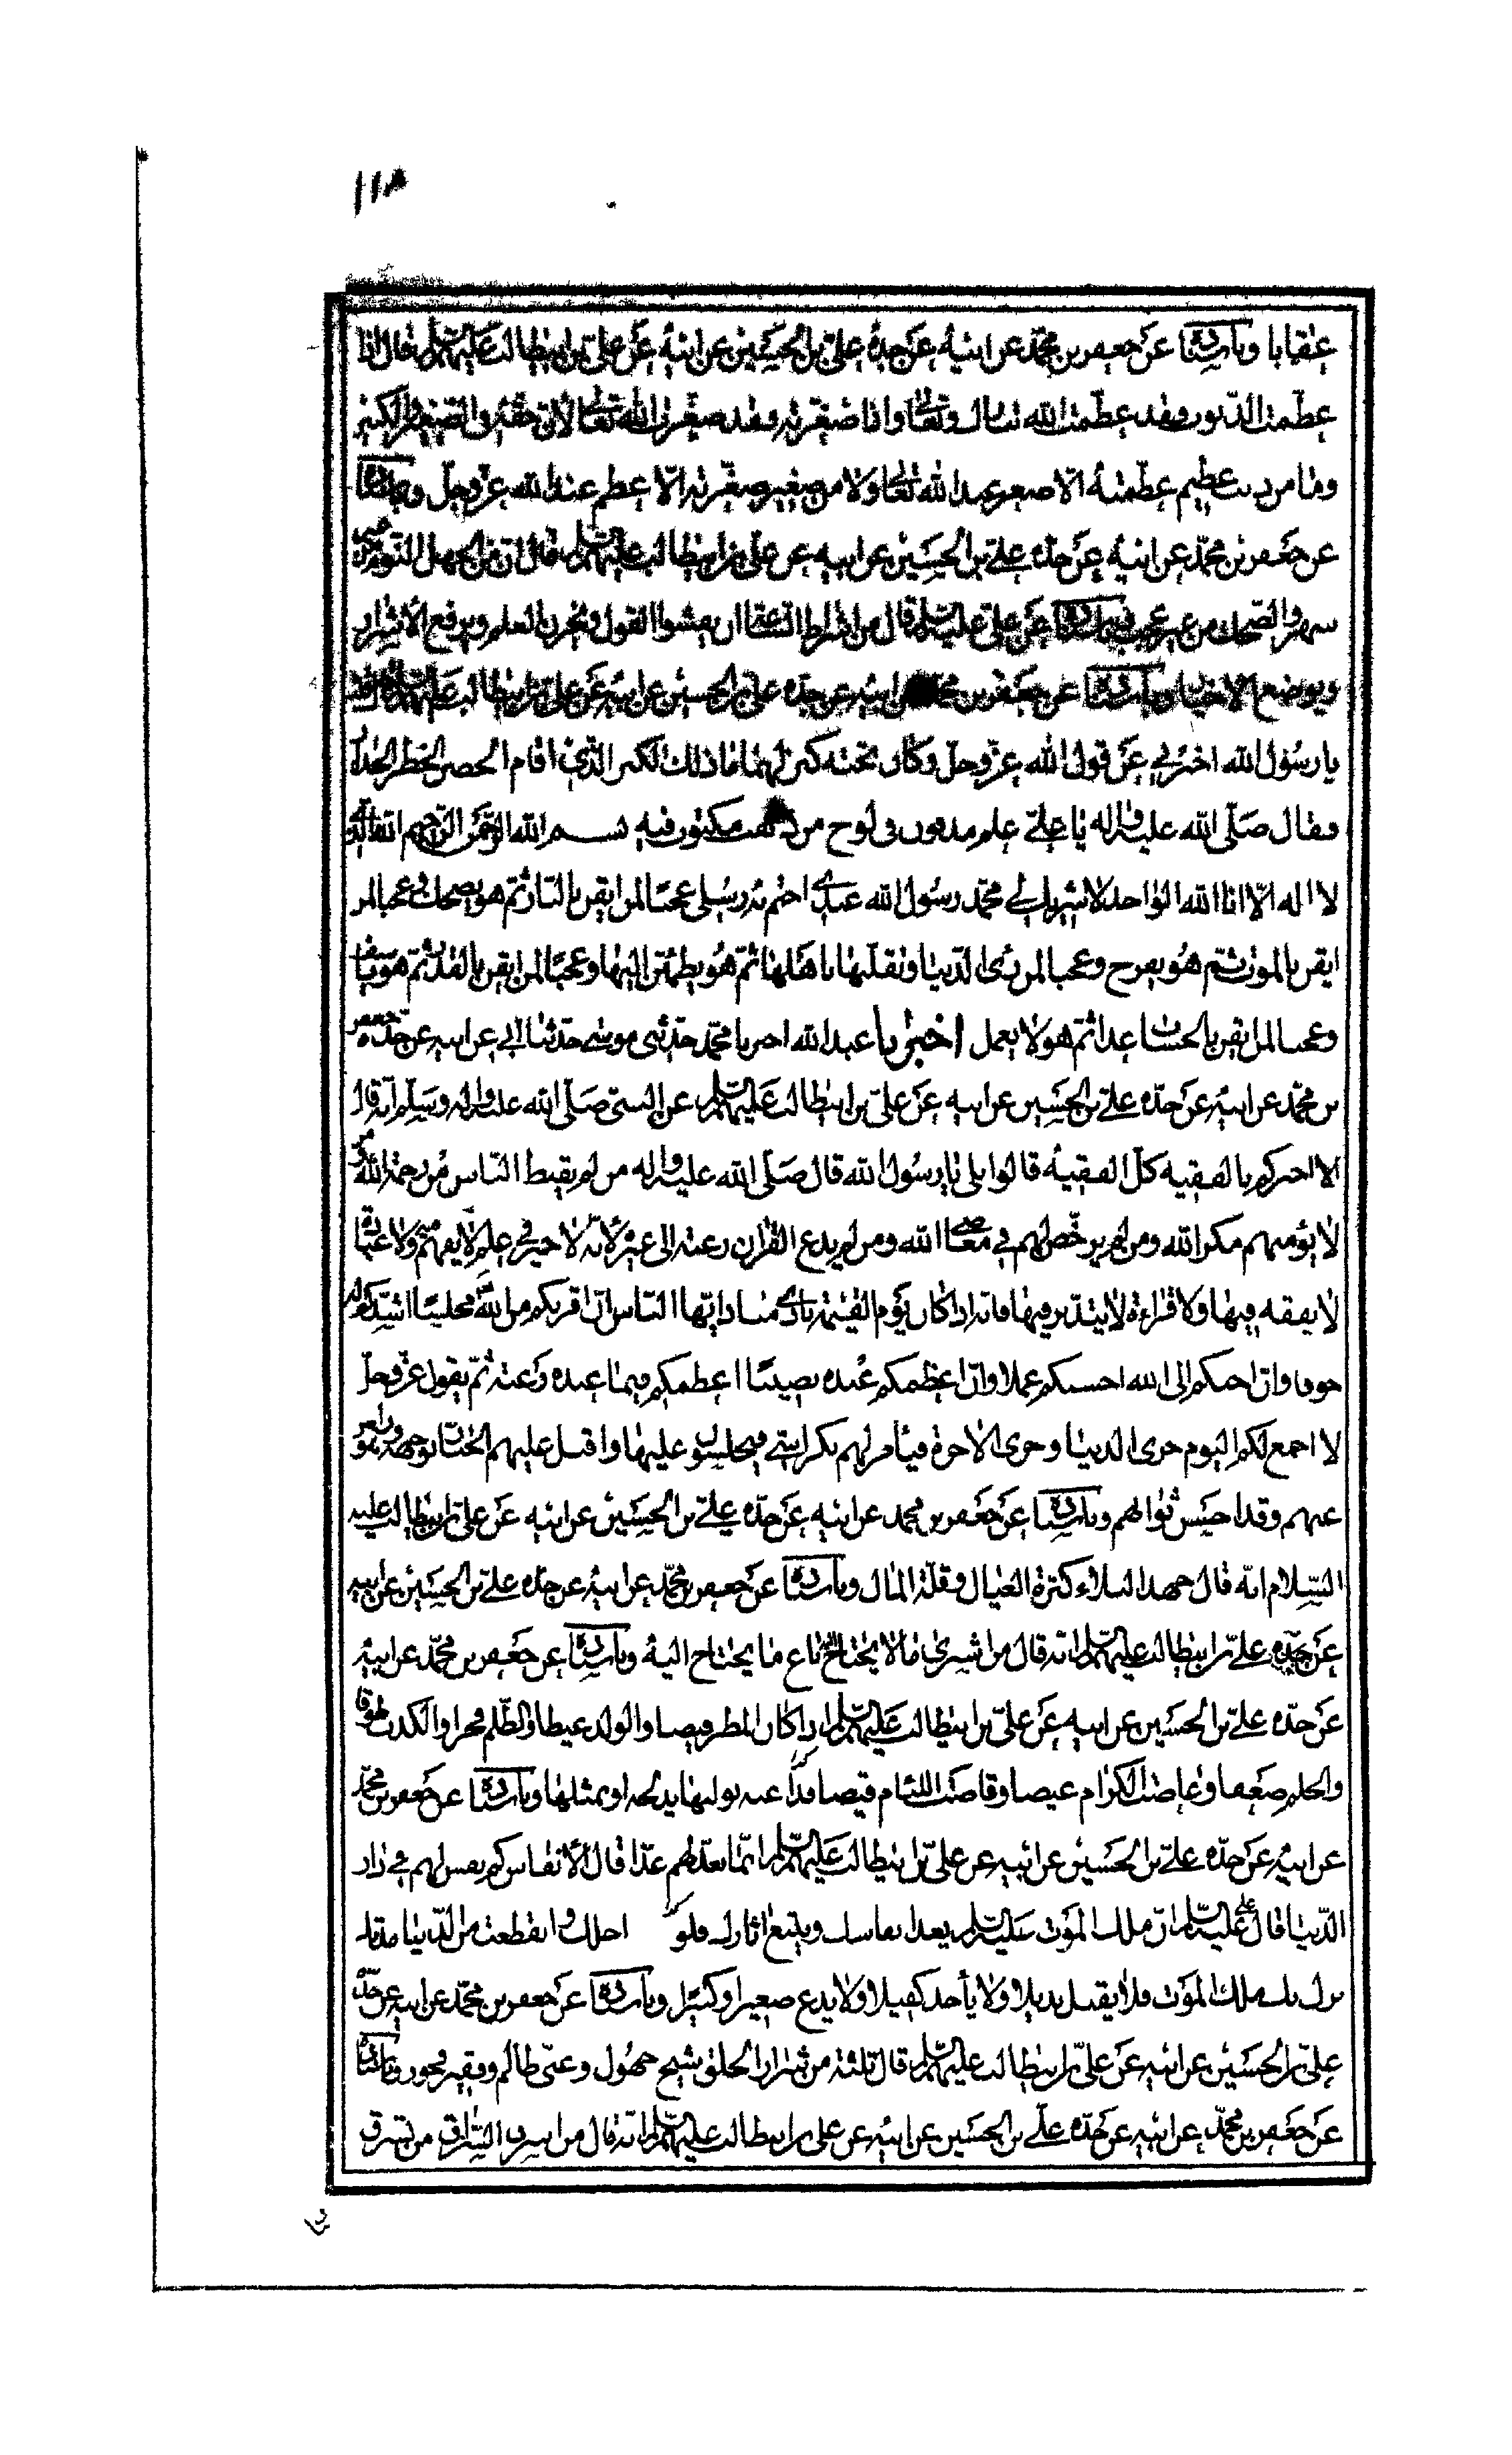 ١١٨
عقابا وباسناده عن جعفر بن محمد عن ابيه عن جده علي بن الحسين عن ابيه عن علي بن ابيطالب عليهم السلم قال اذا
عظمت الذنوب فقد عظمت الله تبارك وتعالى واذا صغرته فقد صغرت الله تعالى لان حقه في الصغير والكبير
وما من ذنب عظيم عظمته الا صغر عند الله تعالى ولا من صغير صغرته الا عظم عند الله عز وجل وباسناده
عن جعفر بن محمد عن ابيه عن جده علي بن الحسين عن ابيه عن علي بن ابيطالب عليهم السلم قال ان من الجهل النوم من غير
سهر والضحك من غير عجب وباسناده عن علي عليه السلم قال من اشراط الساعة ان يفشوا القول ويخزن العلم ويرفع الاشرار
ويوضع الاخيار وباسناده عن جعفر بن محمد عن ابيه عن جده علي بن الحسين عن ابيه عن علي بن ابيطالب عليهم السلم
يا رسول الله اخبرني عن قول الله عز وجل وكان تحته كنز لهما ما ذلك الكنز الذي اقام الخضر الجدار
فقال صلى الله عليه واله يا علي علم مدفون في لوح من ذهب مكتوب فيه بسم الله الرحمن الرحيم
لا اله الا انا الله الواحد لا شريك لي محمد رسول الله عبدي اختم به رسلي عجبا لمن ايقن بالنار ثم هو يضحك وعجبا لمن
ايقن بالموت ثم هو يفرح وعجبا لمن رى الدنيا وتقلبها باهلها ثم هو يطمئن اليها وعجبا لمن ايقن بالقدر ثم هو
وعجبا لمن ايقن بالحساب غدا ثم هو لا يعمل اخبرنا عبد الله اخبرنا محمد حدثني موسى حدثنا ابي عن ابيه عن جده جعفر
بن محمد عن ابيه عن جده علي بن الحسين عن ابيه عن علي بن ابيطالب عليهم السلم عن النبي صلى الله عليه واله وسلم انه قال
الا اخبركم بالفقيه كل الفقيه قالوا بلى يا رسول الله قال صلى الله عليه واله من لم يقنط الناس من رحمة الله ومن
لا يؤمنهم مكر الله ومن لم يرخص لهم في معاصي الله ومن لم يدع القران رغبة الى غيره لانه لا خير في علم لا يفهم ولا عبادة
لا يفقه فيها ولا قراءة لا يتدبر فيها فانه اذا كان يوم القيمة نادى مناد ايها الناس ان اقربكم من الله مجلسا اشدكم له
خوفا وان احبكم الى الله احسنكم عملا وان اعظمكم عنده نصيبا اعظمكم فيما عنده رغبة ثم يقول عز وجل
لا اجمع لكم اليوم خزى الدنيا وخزى الاخرة فيأمر لهم بكراسي فيجلسون عليها واقبل عليهم الجبار بوجهه وهو راض
عنهم وقد احسن ثوابهم وباسناده عن جعفر بن محمد عن ابيه عن جده علي بن الحسين عن ابيه عن علي بن ابيطالب عليه
السلام انه قال جهد البلاء كثرة العيال وقلة المال وباسناده عن جعفر بن محمد عن ابيه عن جده علي بن الحسين عن ابيه
عن جده علي بن ابيطالب عليهم السلم انه قال من اشترى ما لا يحتاج باع ما يحتاج اليه وباسناده عن جعفر بن محمد عن ابيه
عن جده علي بن الحسين عن ابيه عن علي بن ابيطالب عليهم السلم اذا كان المطر قيضا والولد غيظا والظلم فخرا والكذب
والحلم ضعفا وغاضت الكرام غيضا وفاضت اللئام فيضا وباسناده عن جعفر بن محمد
عن ابيه عن جده علي بن الحسين عن ابيه عن علي بن ابيطالب عليهم السلم انما نعد لهم عدا قال الانفاس كم نفس لهم في دار
الدنيا قال علي عليه السلم ان ملك الموت عليه السلم يعد انفاسك ويتبع اثارك فلو احلك وانقطعت من الدنيا مدتك
نزل بك ملك الموت فلا يقبل بديلا ولا يأخذ كفيلا ولا يدع صغيرا وكبيرا وباسناده عن جعفر بن محمد عن ابيه عن جده
علي بن الحسين عن ابيه عن علي بن ابيطالب عليهم السلم قال ثلثة من شرار الخلق شيخ جهول وغني ظالم وفقير فخور وباسناده
عن جعفر بن محمد عن ابيه عن جده علي بن الحسين عن ابيه عن علي بن ابيطالب عليهم السلم انه قال من اسرق السراق من يسرق